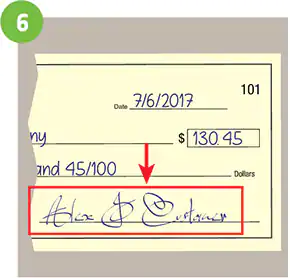 6
101
Date 7/6/2017
ny $ 130.45
and 45/100 Dollars
Alex J Customer